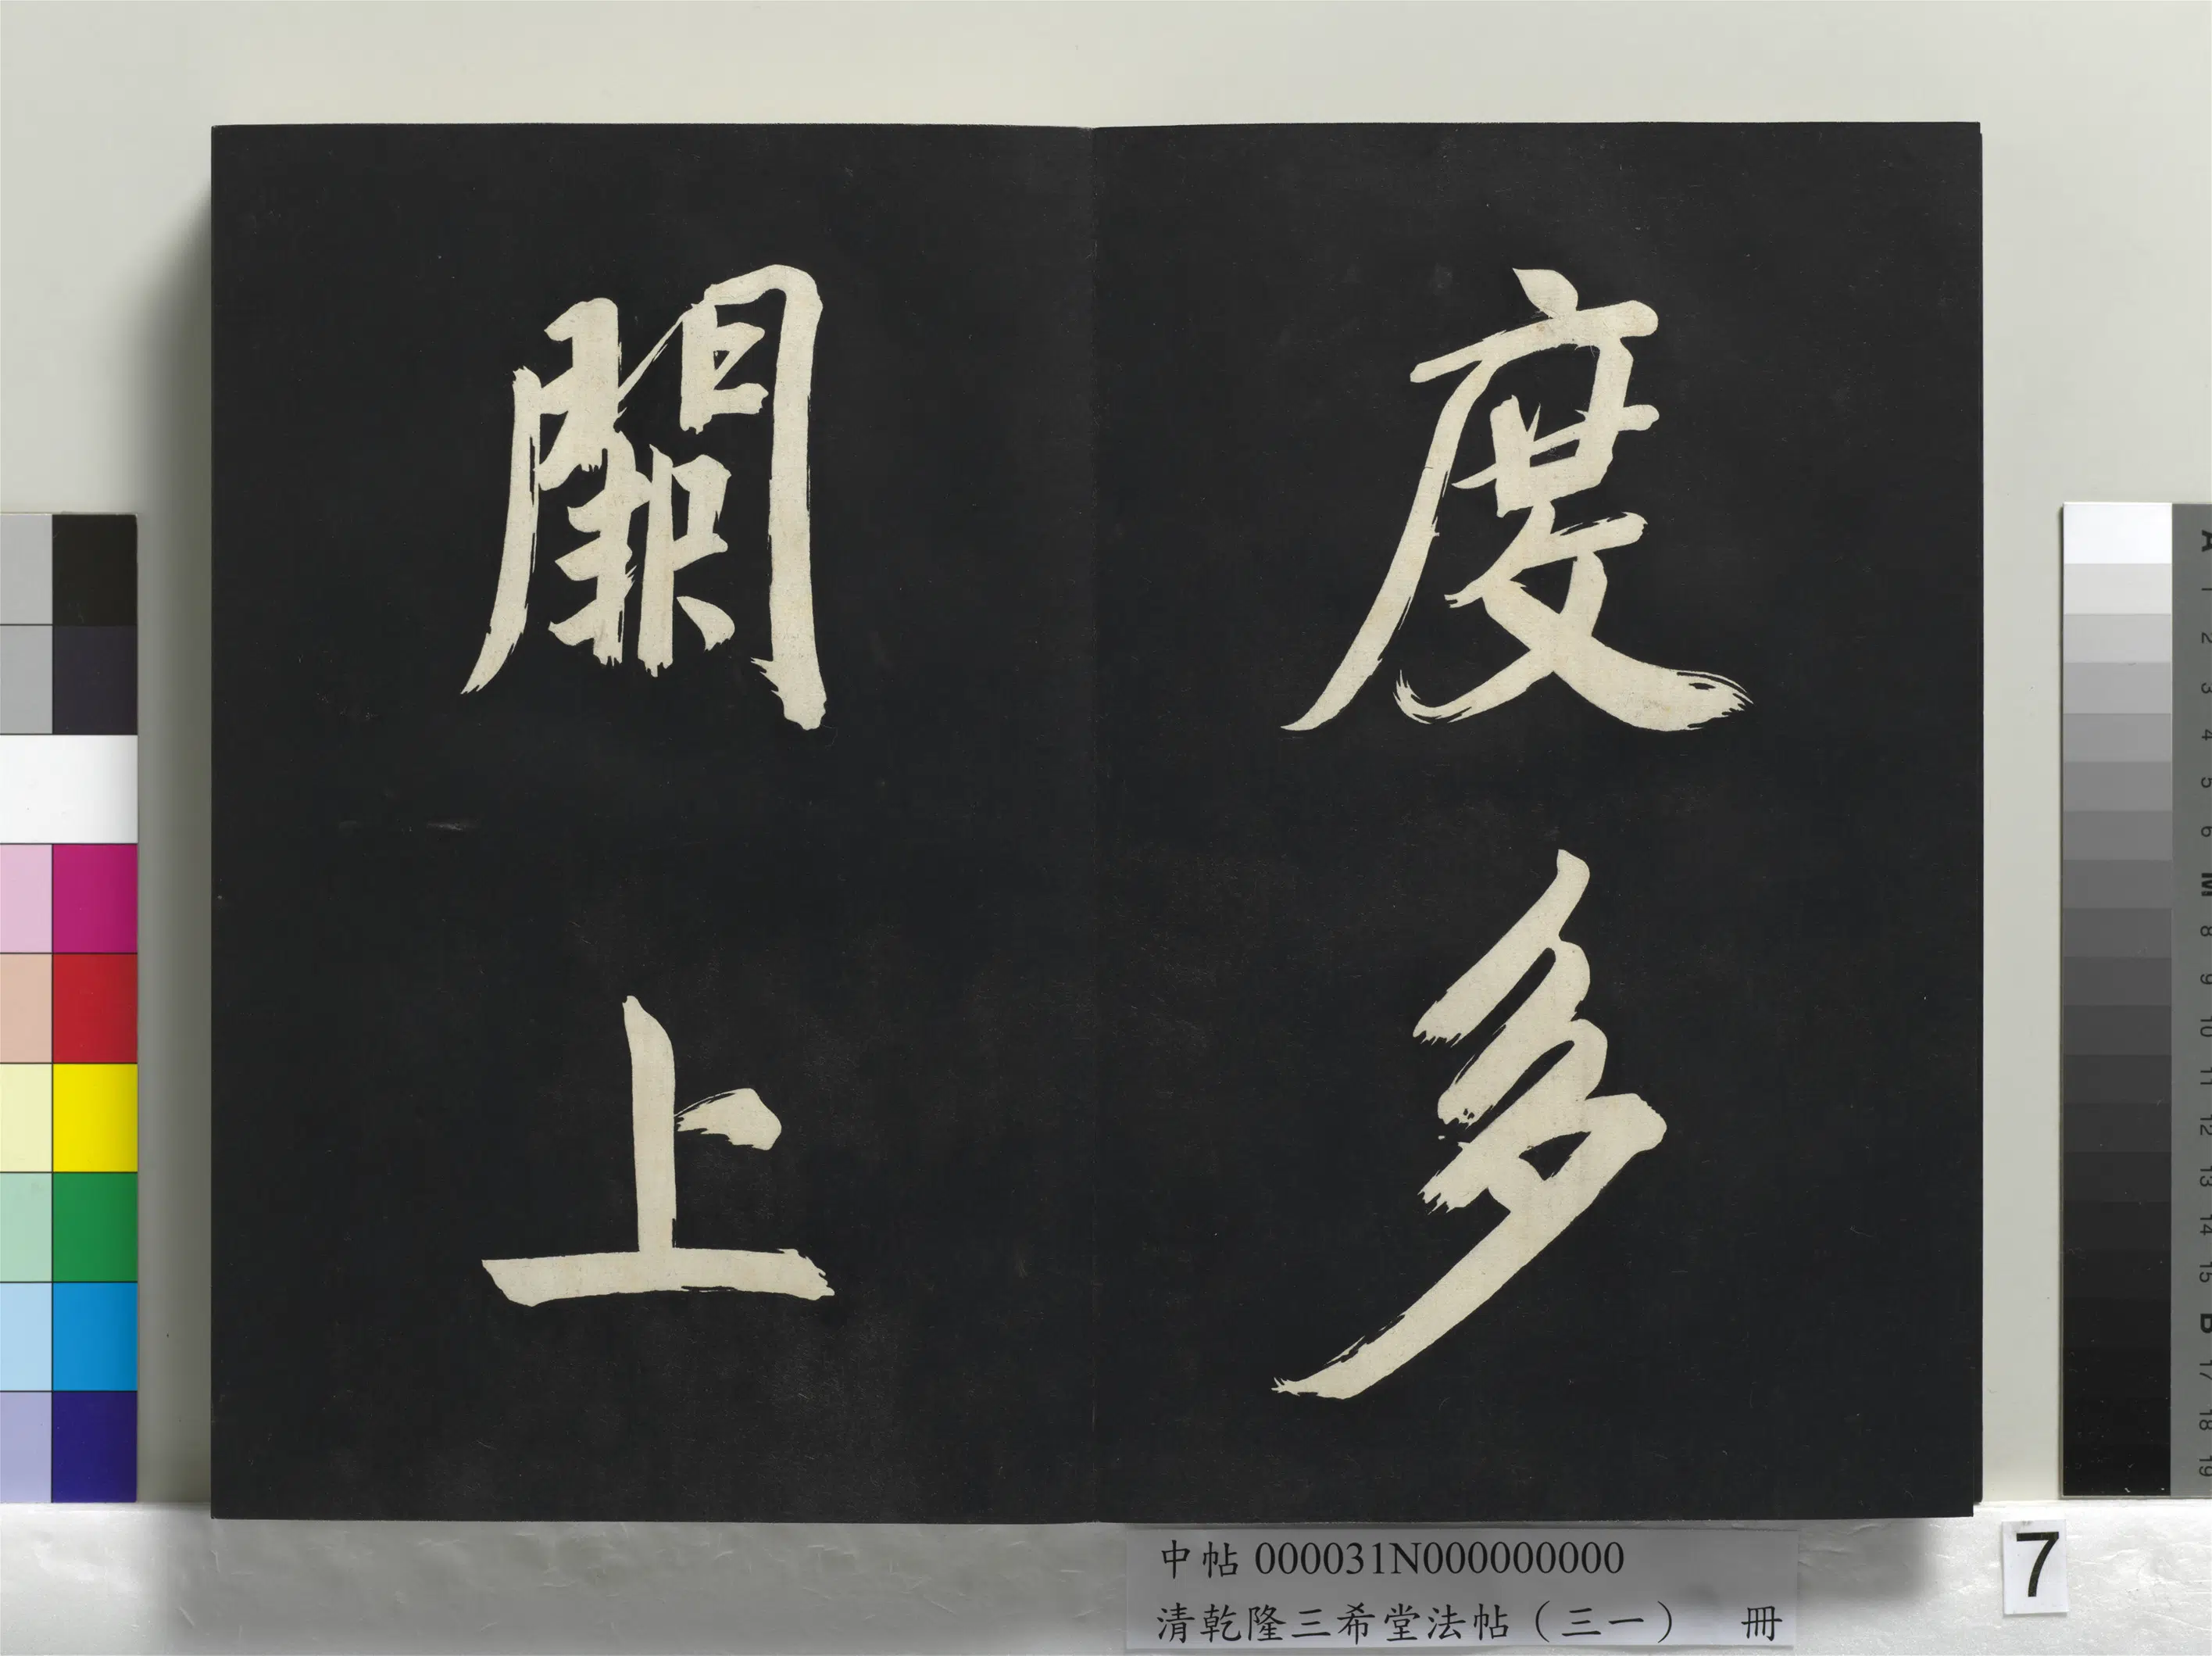 度多
闌上
中帖 000031N000000000
清乾隆三希堂法帖（三一） 冊
7
A 1 2 3 4 5 6 M 8 9 10 11 12 13 14 15 B 17 18 19